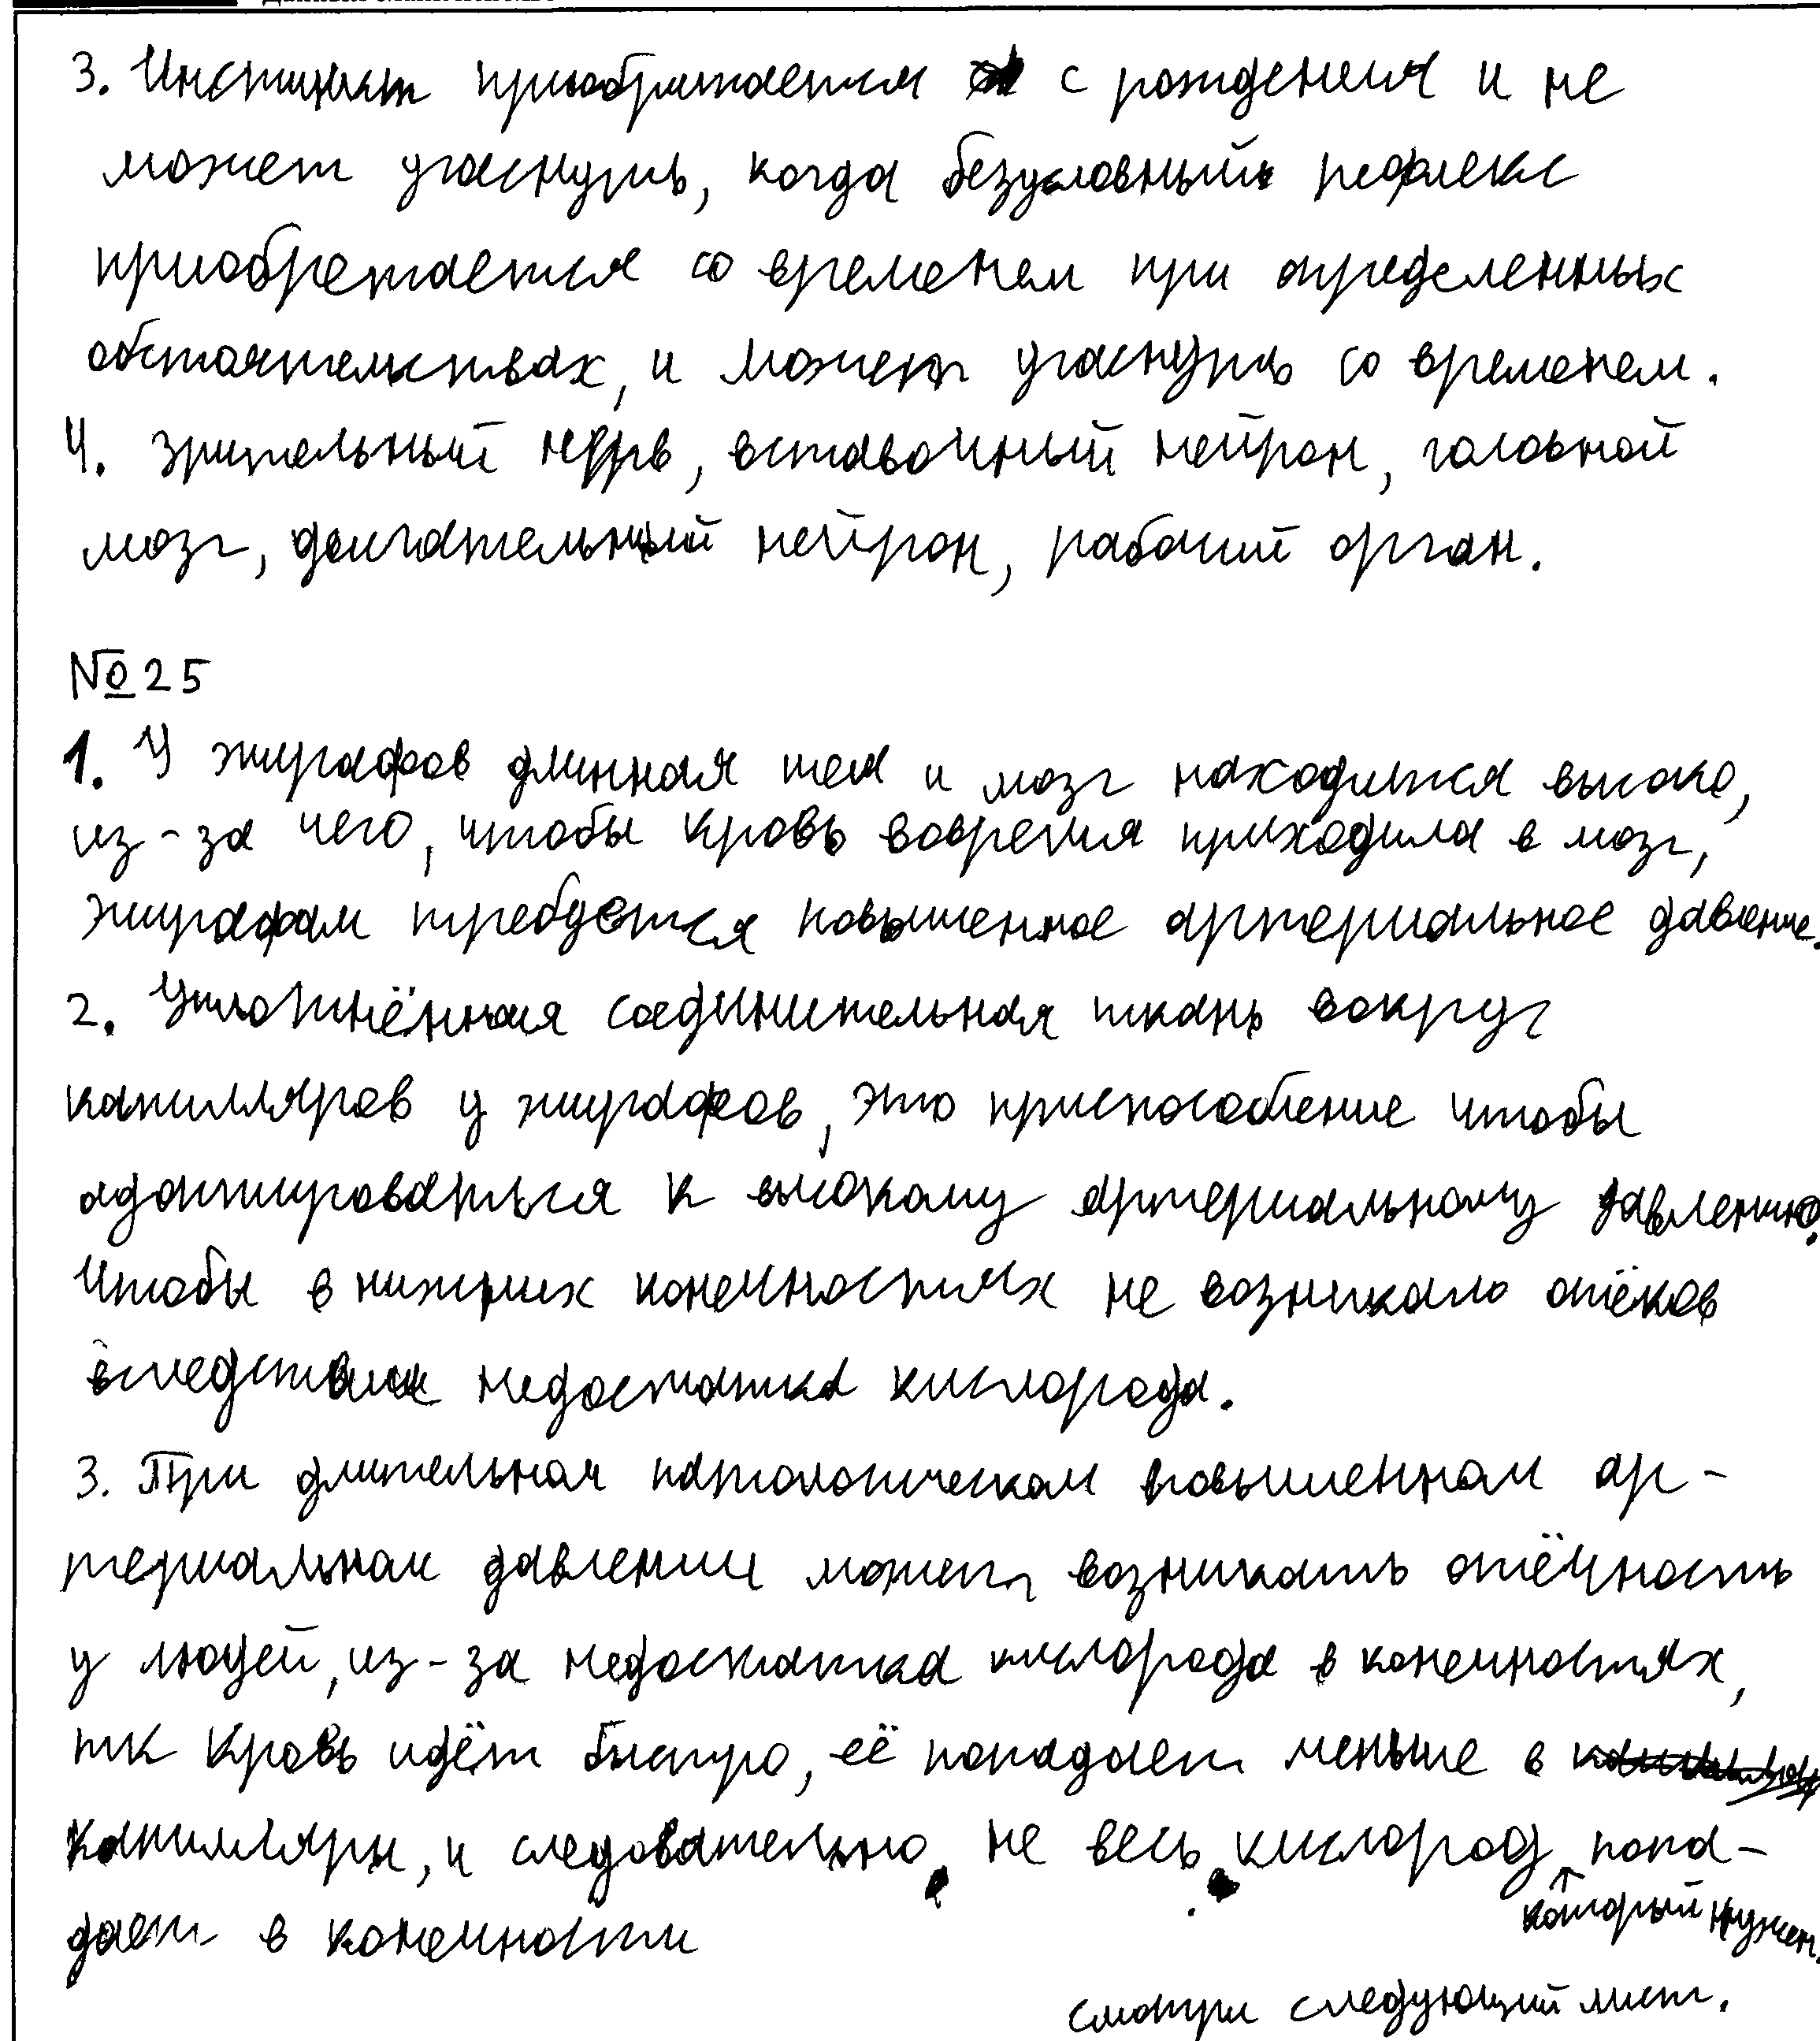 3. Инстинкт приобретается с рождения и не
может угаснуть, когда безусловный рефлекс
приобретается со временем при определенных
обстоятельствах, и может угаснуть со временем.
4. зрительный нерв, вставочный нейрон, головной
мозг, двигательный нейрон, рабочий орган.
№25
1. У жирафов длинная шея и мозг находится высоко,
из-за чего, чтобы кровь вовремя приходила в мозг,
жирафам требуется повышенное артериальное давление.
2. Уплотнённая соединительная ткань вокруг
капилляров у жирафов, это приспособление чтобы
адаптироваться к высокому артериальному давлению.
Чтобы в нижних конечностях не возникало отёков
вследствие недостатка кислорода.
3. При длительном патологическом повышенном ар-
териальном давлении может возникать отёчность
у людей, из-за недостатка кислорода в конечностях,
тк кровь идёт быстро, её попадает меньше в
капилляры, и следовательно не весь кислород попа-
который нужен.
дает в конечности
смотри следующий лист.